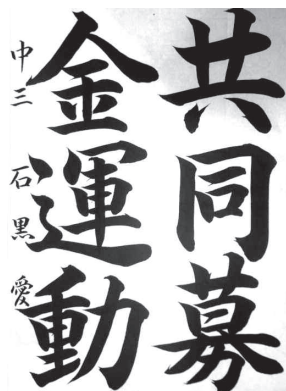 共同募
金運動
中三 石黒 愛